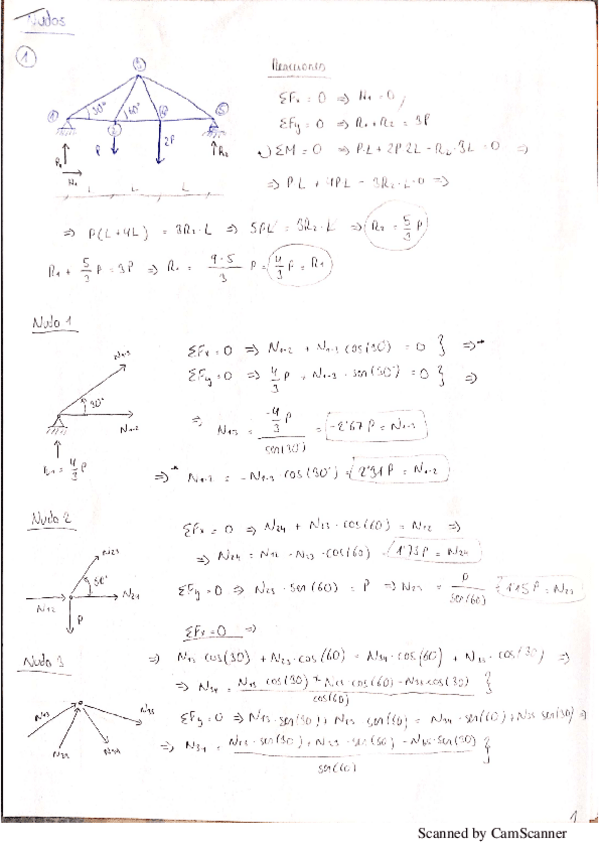 Nudos
1
Reacciones
ΣFx = 0 ⇒ H1 = 0
ΣFy = 0 ⇒ R1 + R2 = 3P
ΣM = 0 ⇒ P·L + 2P·2L - R2·3L = 0 ⇒
⇒ PL + 4PL - 3R2·L = 0 ⇒
1
2
3
4
5
30°
60°
P
2P
R1
H1
R2
L
L
L
⇒ P(L+4L) = 3R2·L ⇒ 5PL = 3R2·L ⇒ R2 = 5/3 P
R1 + 5/3 P = 3P ⇒ R1 = (9-5)/3 P = 4/3 P = R1
Nudo 1
ΣFx = 0 ⇒ N1-2 + N1-3 cos(30) = 0 } ⇒*
ΣFy = 0 ⇒ 4/3 P + N1-3 · sen(30°) = 0 } ⇒
N1-3
30°
N1-2
R1 = 4/3 P
⇒ N1-3 = (-4/3 P)/sen(30°) = -2'67P = N1-3
⇒* N1-2 = -N1-3 cos(30°) = 2'31P = N1-2
Nudo 2
ΣFx = 0 ⇒ N24 + N23 · cos(60) = N12 ⇒
⇒ N24 = N12 - N23 · cos(60) = 1'73P = N24
ΣFy = 0 ⇒ N23 · sen(60) = P ⇒ N23 = P/sen(60) = 1'15P = N23
N23
60°
N12
N24
P
ΣFx = 0 ⇒
Nudo 3
⇒ N13 cos(30) + N23 · cos(60) = N34 · cos(60) + N35 · cos(30) ⇒
⇒ N34 = (N13 cos(30) + N23 cos(60) - N35 cos(30))/cos(60) }
ΣFy = 0 ⇒ N13 · sen(30) + N23 · sen(60) = N34 · sen(60) + N35 sen(30) ⇒
⇒ N34 = (N13 · sen(30) + N23 · sen(60) - N35 · sen(30))/sen(60) }
N13
N35
N23
N34
1
Scanned by CamScanner